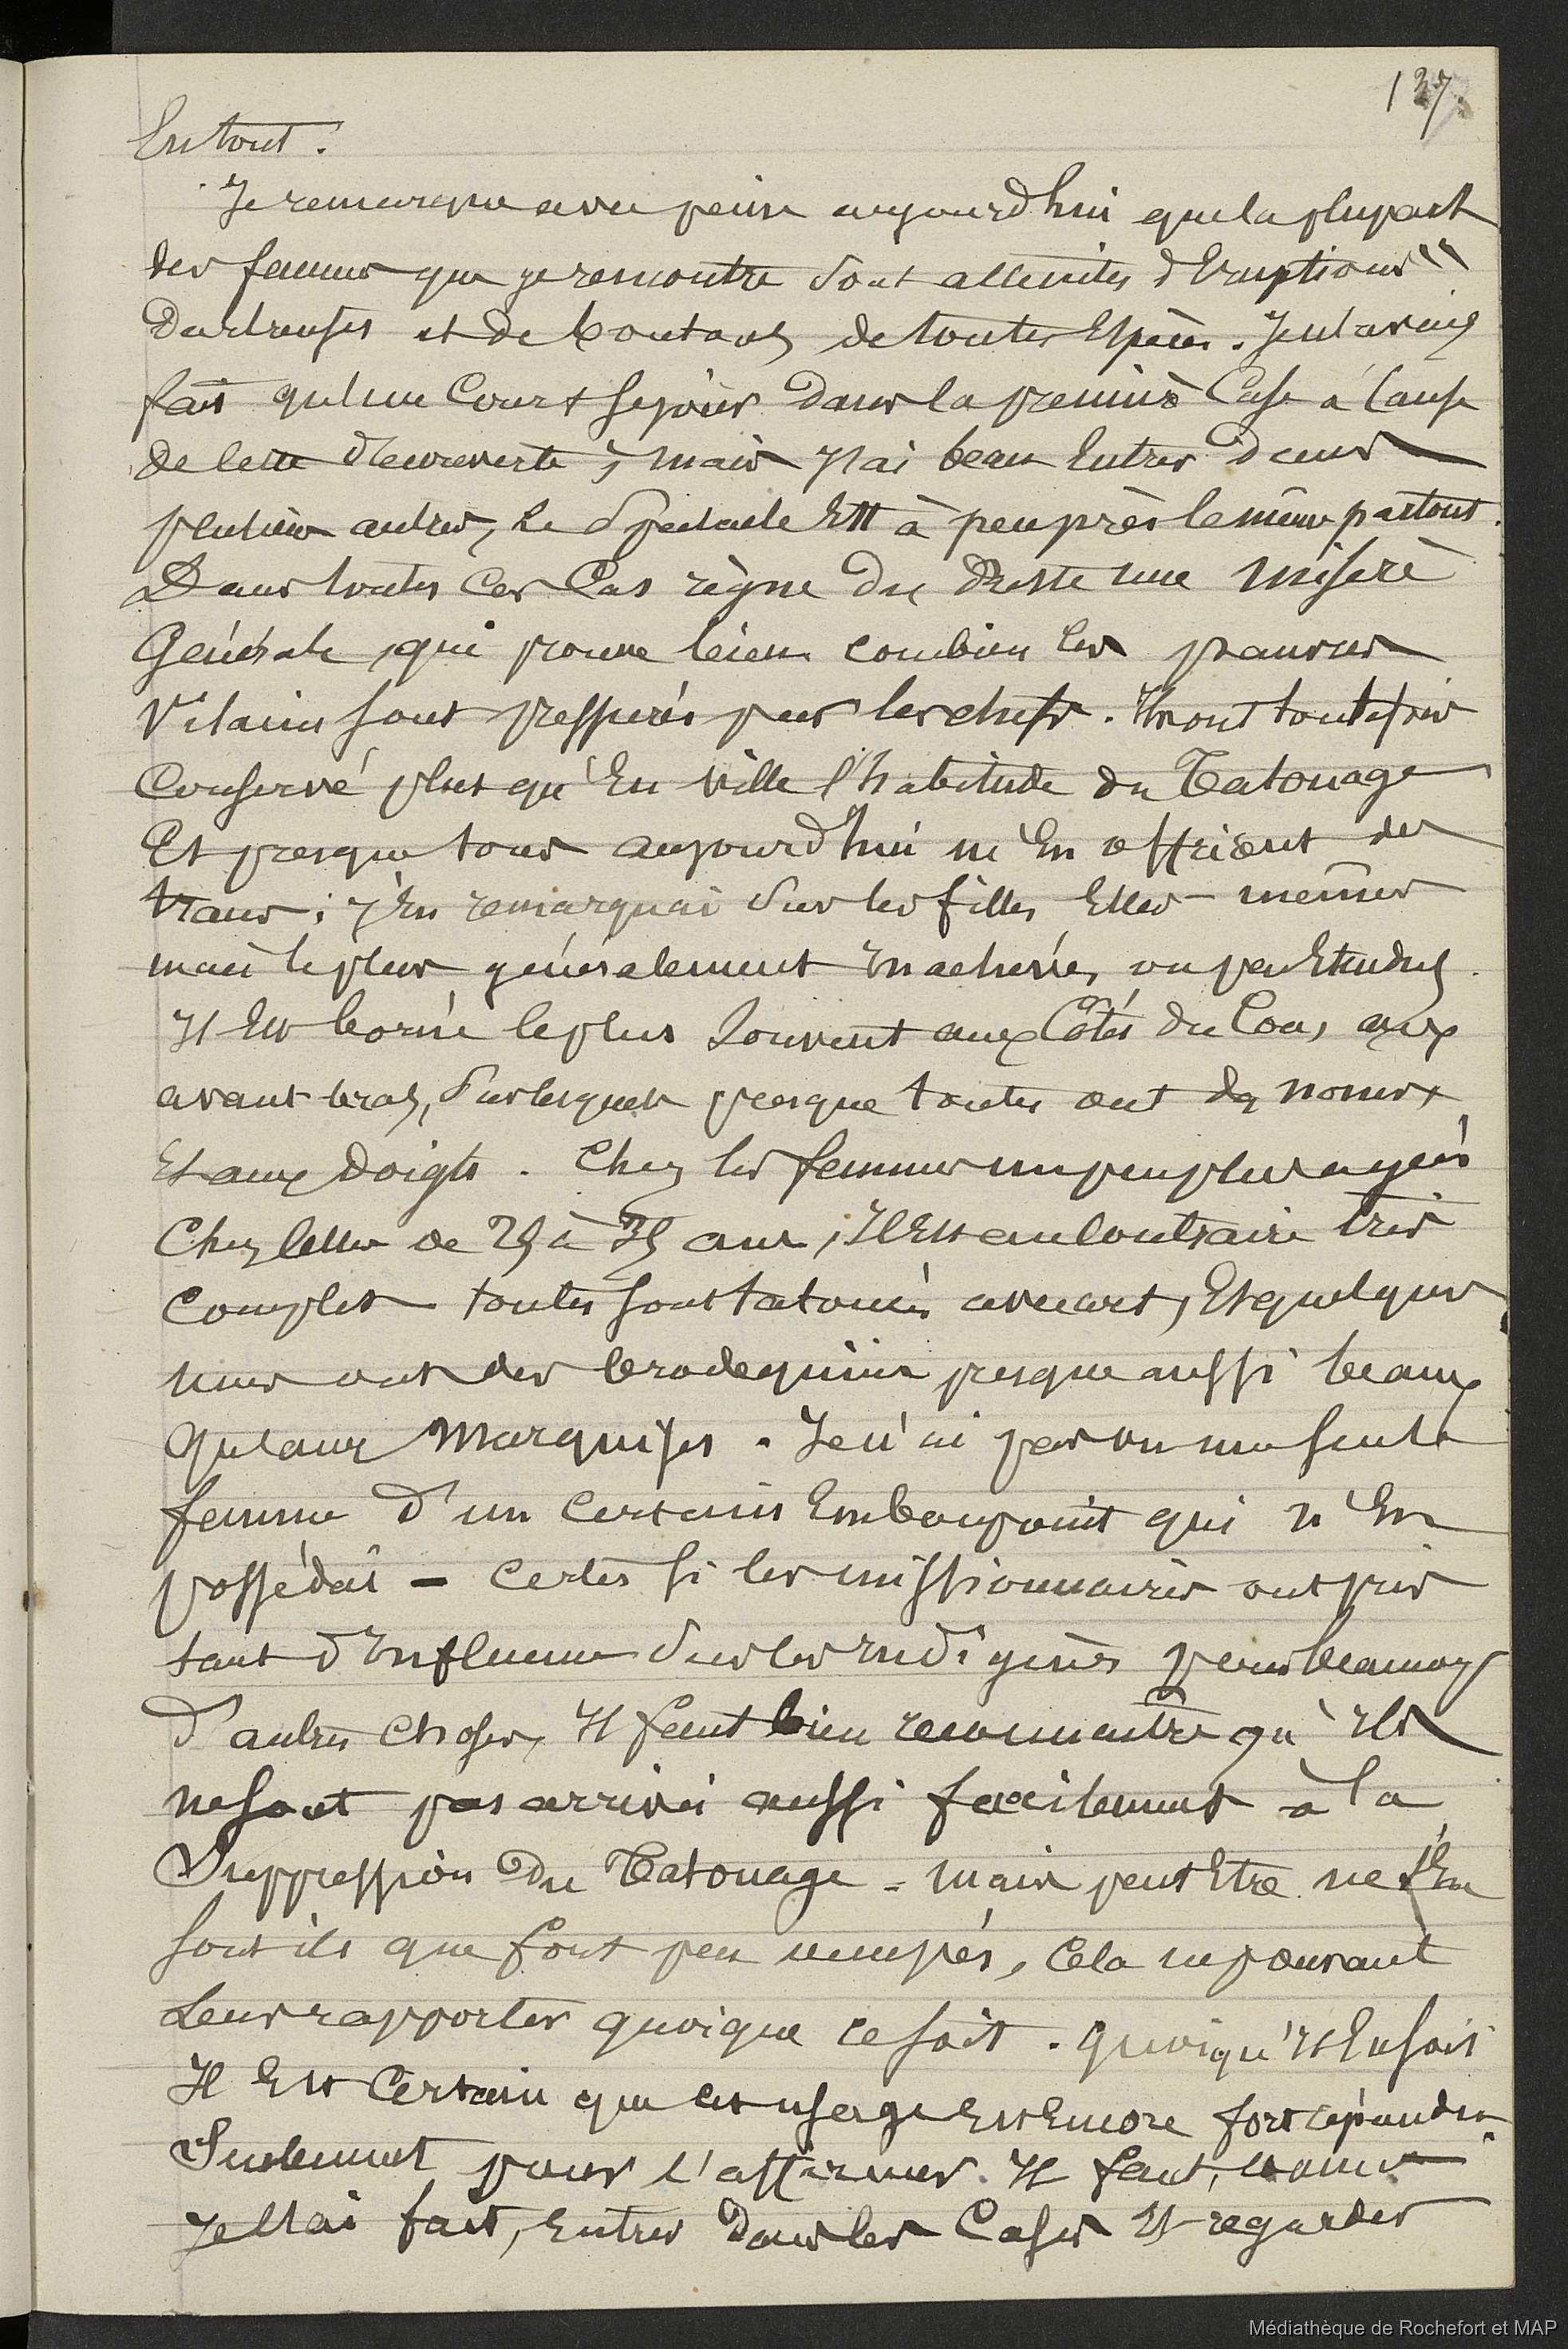 137
En tout.
Je remarque avec peine aujourd'hui que la plupart
des femmes que je rencontre sont atteintes d'Eruptions
dartreuses et de boutons de toutes Espèces. Je n'avais
fait qu'une Court séjour dans la première Case à Cause
de cette découverte ; mais J'ai beau Entrer dans
plusieurs autres, le Spectacle Est à peu près le même partout.
Dans toutes Ces Cas règne du Reste une misère
Générale, qui prouve bien combien les pauvres
Vilains sont pressurés par les chefs. Ils ont toutefois
Conservé plus qu'En Ville l'habitude du Tatouage
Et presque tous aujourd'hui m'En offrirent des
traces ; j'En remarquai sur les filles Elles-mêmes
mais le plus généralement Inachevé, ou peu Etendus.
Il Est borné le plus Souvent aux Côtés du Cou, aux
avant bras, sur lesquels presque toutes ont des noms
Et aux Doigts. Chez les femmes un peu plus agées
Chez Celles de 25 à 35 ans, Il Est au Contraire très
Complet toutes sont tatouées avec art, Et quelques
unes ont des brodequins presque aussi beaux
qu'aux Marquises. Je n'ai pas vu une seule
femme d'un Certain Embonpoint qui n'En
possédât - Certes si les missionnaires ont pris
tant d'Influence sur les Indigènes pour beaucoup
d'autres Choses, Il faut bien reconnaître qu'Ils
ne sont pas arrivés aussi facilement à la
Suppression du Tatouage - mais peut Etre ne s'En
sont ils que fort peu occupés, Cela ne pouvant
Leur rapporter quoique ce soit. Quoiqu'Il En soit
Il Est Certain que cet usage Est Encore fort répandu.
Seulement pour l'affirmer Il faut, comme
Je l'ai fait, Entrer Dans les Cases Et regarder
Médiathèque de Rochefort et MAP